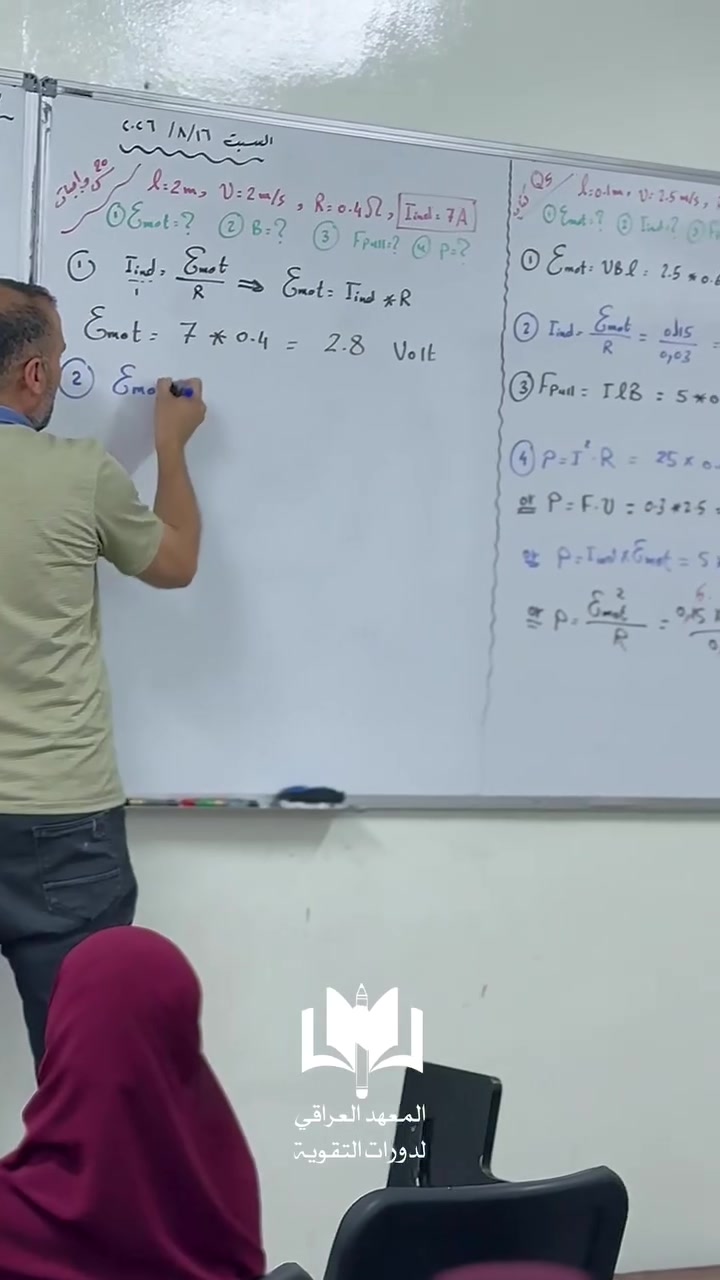 السبت ٢٠٢٦/٨/١٦
l=2m, υ=2m/s, R=0.4Ω, Iind=7A
① Ɛmot=? ② B=? ③ FPull=? ④ P=?
① Iind = Ɛmot/R ⇒ Ɛmot = Iind * R
Ɛmot = 7 * 0.4 = 2.8 Volt
② Ɛmo
Q5 l=0.1m, υ=2.5m/s,
① Ɛmot=? ② Iind=? ③
① Ɛmot = υBl = 2.5 * 0.6
② Iind = Ɛmot/R = 0.15/0,03 =
③ FPull = IlB = 5 * 0
④ P=I²·R = 25 × 0
or P=F·υ = 0.3 * 2.5 =
or P=Iind × Ɛmot = 5 ×
or P = Ɛ²mot/R = 0,15
المعهد العراقي
لدورات التقوية